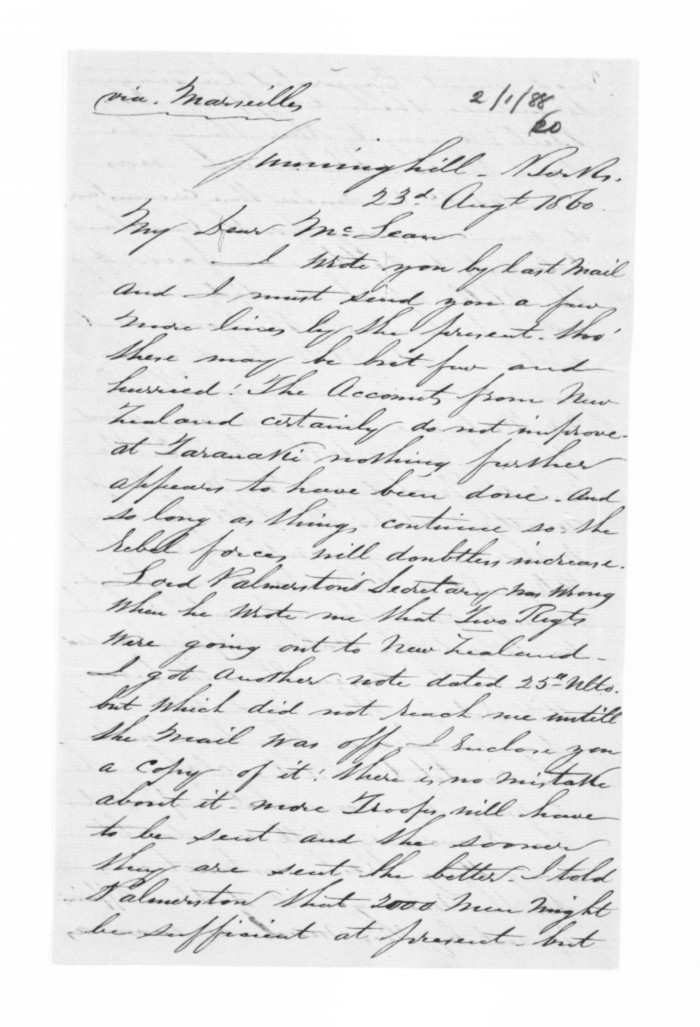 via. Marseilles
2/1/88
/20
Sunninghill - Berks.
23d. Augt 1860.
My Dear McLean
I wrote you by last Mail
and I must send you a few
more lines by the present. tho'
these may be but few and
hurried! The Accounts from New
Zealand certainly do not improve -
at Taranaki nothing further
appears to have been done. And
so long as things continue so. the
Rebel forces will doubtless increase.
Lord Palmerston's Secretary was wrong
when he wrote me that Two Regts
were going out to New Zealand -
I got another note dated 25th Ulto.
but which did not reach me untill
the Mail was off - I Enclose you
a copy of it! there is no mistake
about it - more Troops will have
to be sent and the sooner
they are sent the better. I told
Palmerston that 2000 Men might
be sufficient at present - but